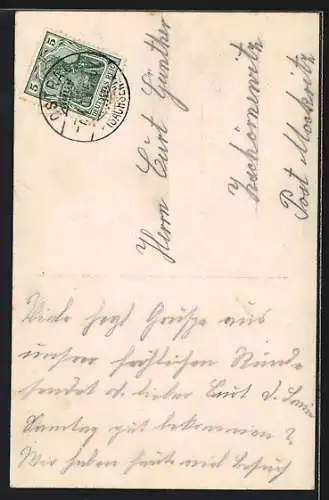 5 5
DEUTSCHES REICH
OSTRAU
(SACHSEN)
Herrn Curt Günther
Zschörnewitz
Post Mochritz
Viele herzl Grüße aus
unsrer fröhlichen Runde
sendet d. lieber Curt d.
Sonntag gut bekommen?
Wir haben heute viel Besuch